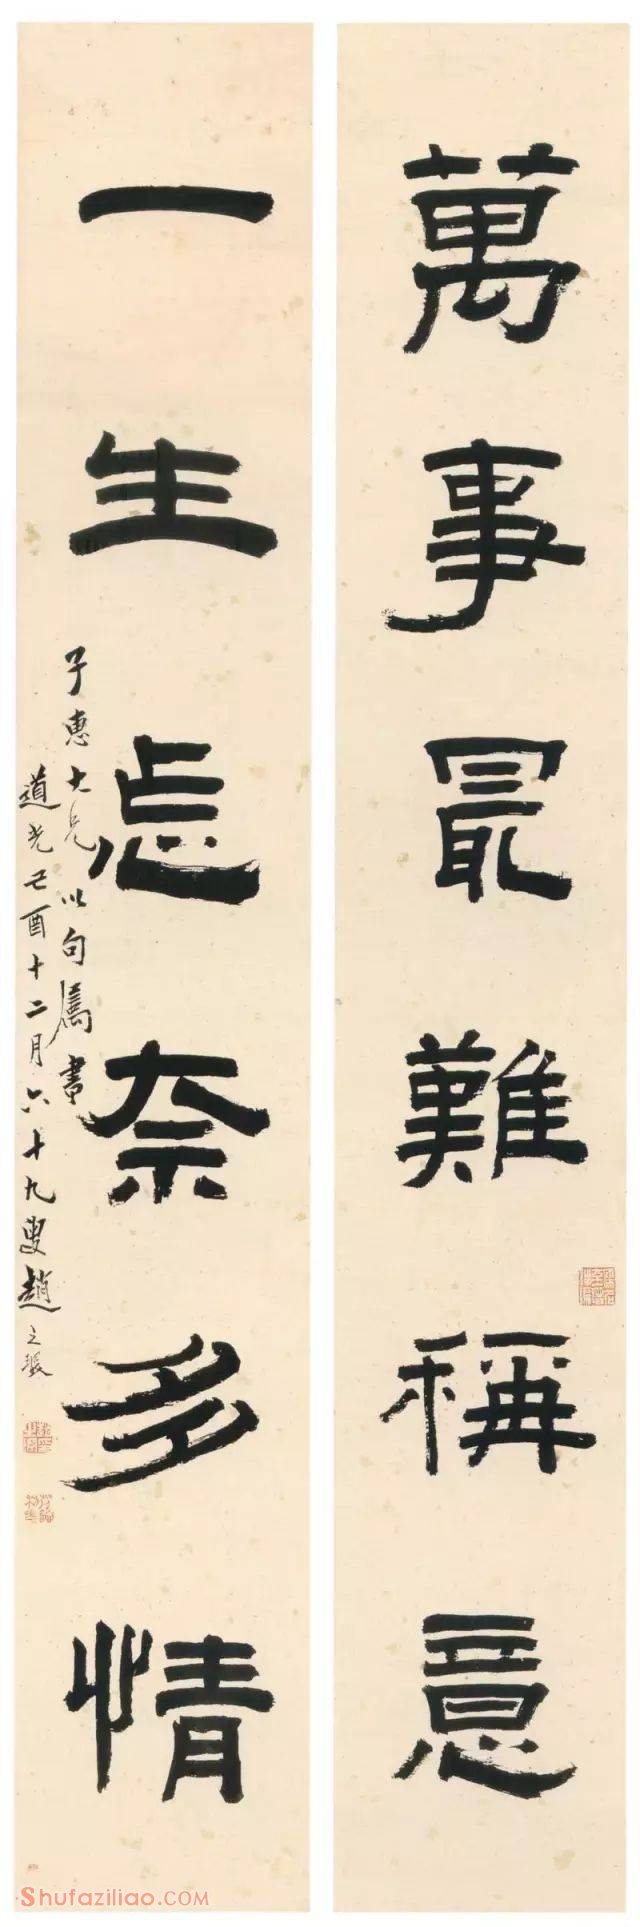 萬事最難稱意
一生怎奈多情
子惠大兄以句屬書
道光己酉十二月六十九叟趙之琛
Shufaziliao.COM